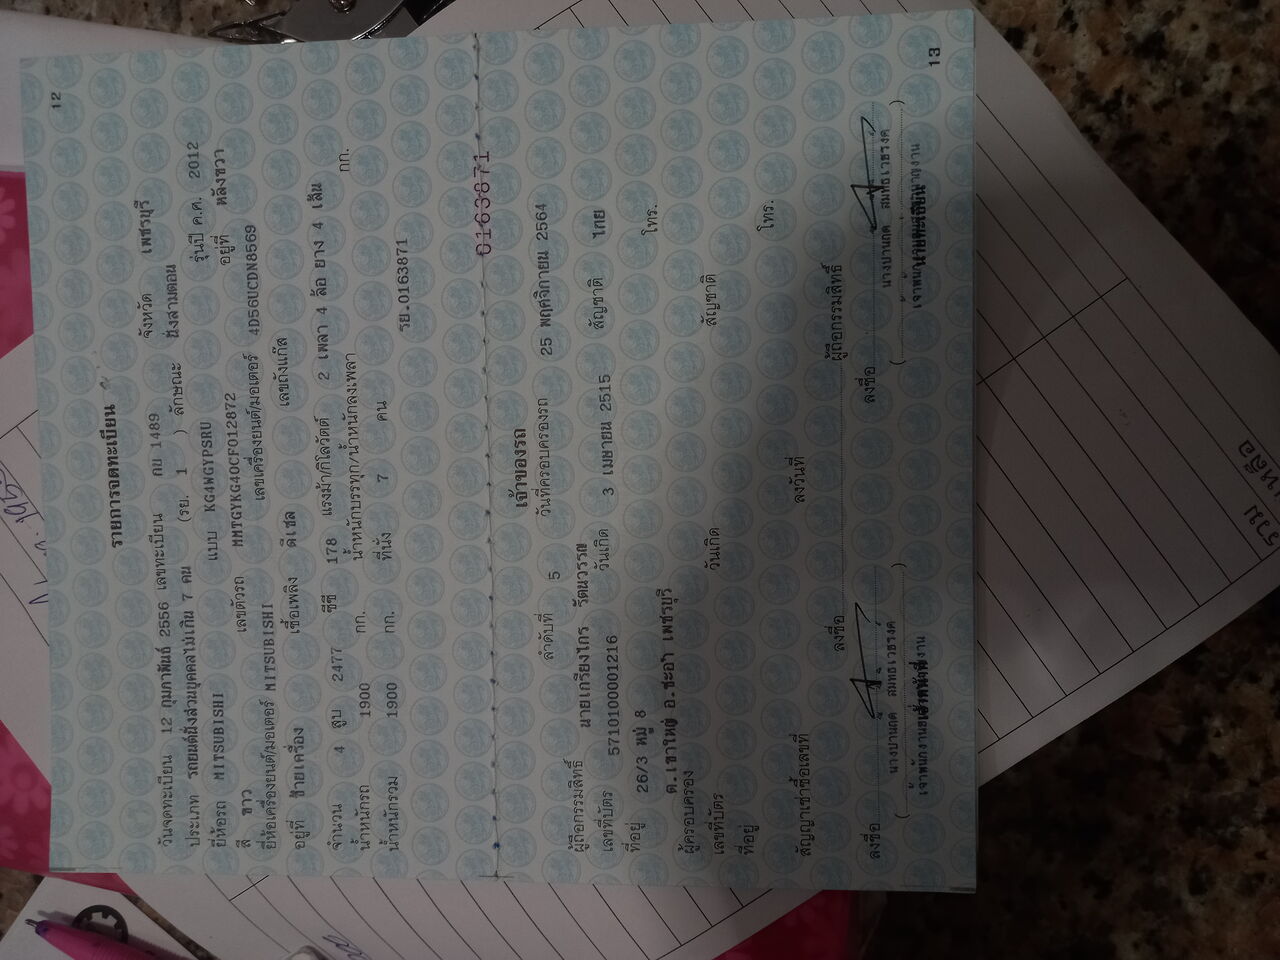 12
รายการจดทะเบียน
วันจดทะเบียน 12 กุมภาพันธ์ 2556 เลขทะเบียน กบ 1489 จังหวัด เพชรบุรี
ประเภท รถยนต์นั่งส่วนบุคคลไม่เกิน 7 คน (รย. 1 ) ลักษณะ นั่งสามตอน
ยี่ห้อรถ MITSUBISHI แบบ KG4WGYPSRU รุ่นปี ค.ศ. 2012
สี ขาว เลขตัวรถ MMTGYKG40CF012872 อยู่ที่ หลังขวา
ยี่ห้อเครื่องยนต์/มอเตอร์ MITSUBISHI เลขเครื่องยนต์/มอเตอร์ 4D56UCDN8569
อยู่ที่ ซ้ายเครื่อง เชื้อเพลิง ดีเซล เลขถังแก๊ส
จำนวน 4 สูบ 2477 ซีซี 178 แรงม้า/กิโลวัตต์ 2 เพลา 4 ล้อ ยาง 4 เส้น
น้ำหนักรถ 1900 กก. น้ำหนักบรรทุก/น้ำหนักลงเพลา กก.
น้ำหนักรวม 1900 กก. ที่นั่ง 7 คน
รย.0163871
0163871
เจ้าของรถ
ลำดับที่ 5 วันที่ครอบครองรถ 25 พฤศจิกายน 2564
ผู้ถือกรรมสิทธิ์ นายเกรียงไกร รัตนวรรณ
เลขที่บัตร 5710100001216 วันเกิด 3 เมษายน 2515 สัญชาติ ไทย
ที่อยู่ 26/3 หมู่ 8 โทร.
ต.เขาใหญ่ อ.ชะอำ เพชรบุรี
ผู้ครอบครอง
เลขที่บัตร วันเกิด สัญชาติ
ที่อยู่ โทร.
สัญญาเช่าซื้อเลขที่ ลงวันที่
ลงชื่อ ผู้ถือกรรมสิทธิ์
ลงชื่อ ลงชื่อ
( ) ( )
13
รวม